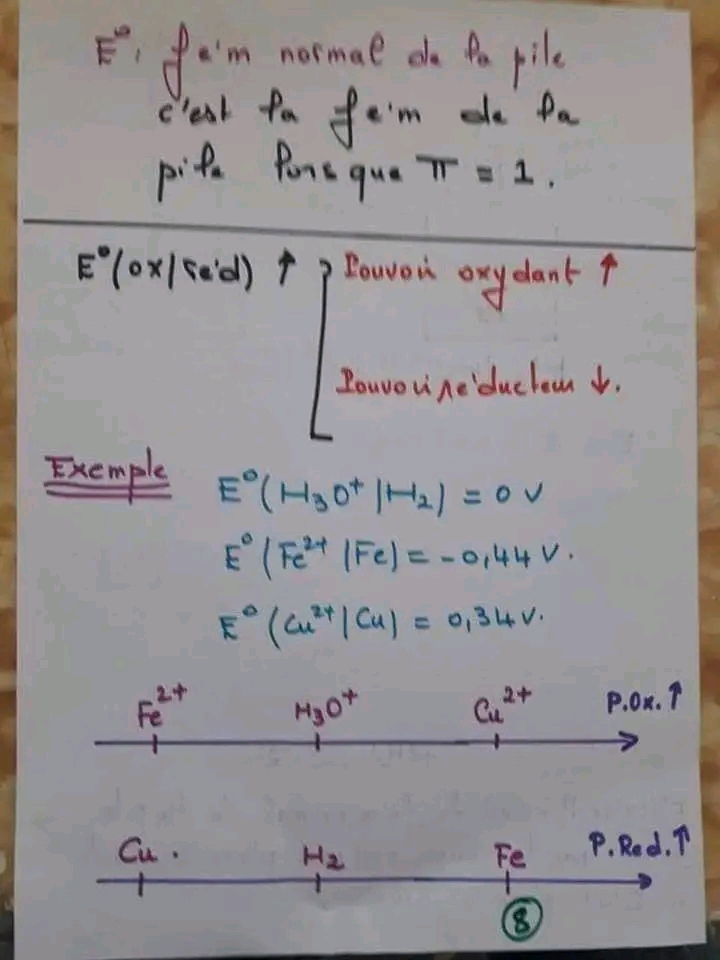 E°: fém normal de la pile
c'est la fém de la
pile lorsque π = 1.
E°(ox/réd) ↑ Pouvoir oxydant ↑
Pouvoir réducteur ↓.
Exemple
E°(H₃O⁺/H₂) = 0 V
E°(Fe²⁺/Fe) = -0,44 V.
E°(Cu²⁺/Cu) = 0,34 V.
Fe²⁺ H₃O⁺ Cu²⁺ P.Ox.↑
Cu. H₂ Fe P.Red.↑
8